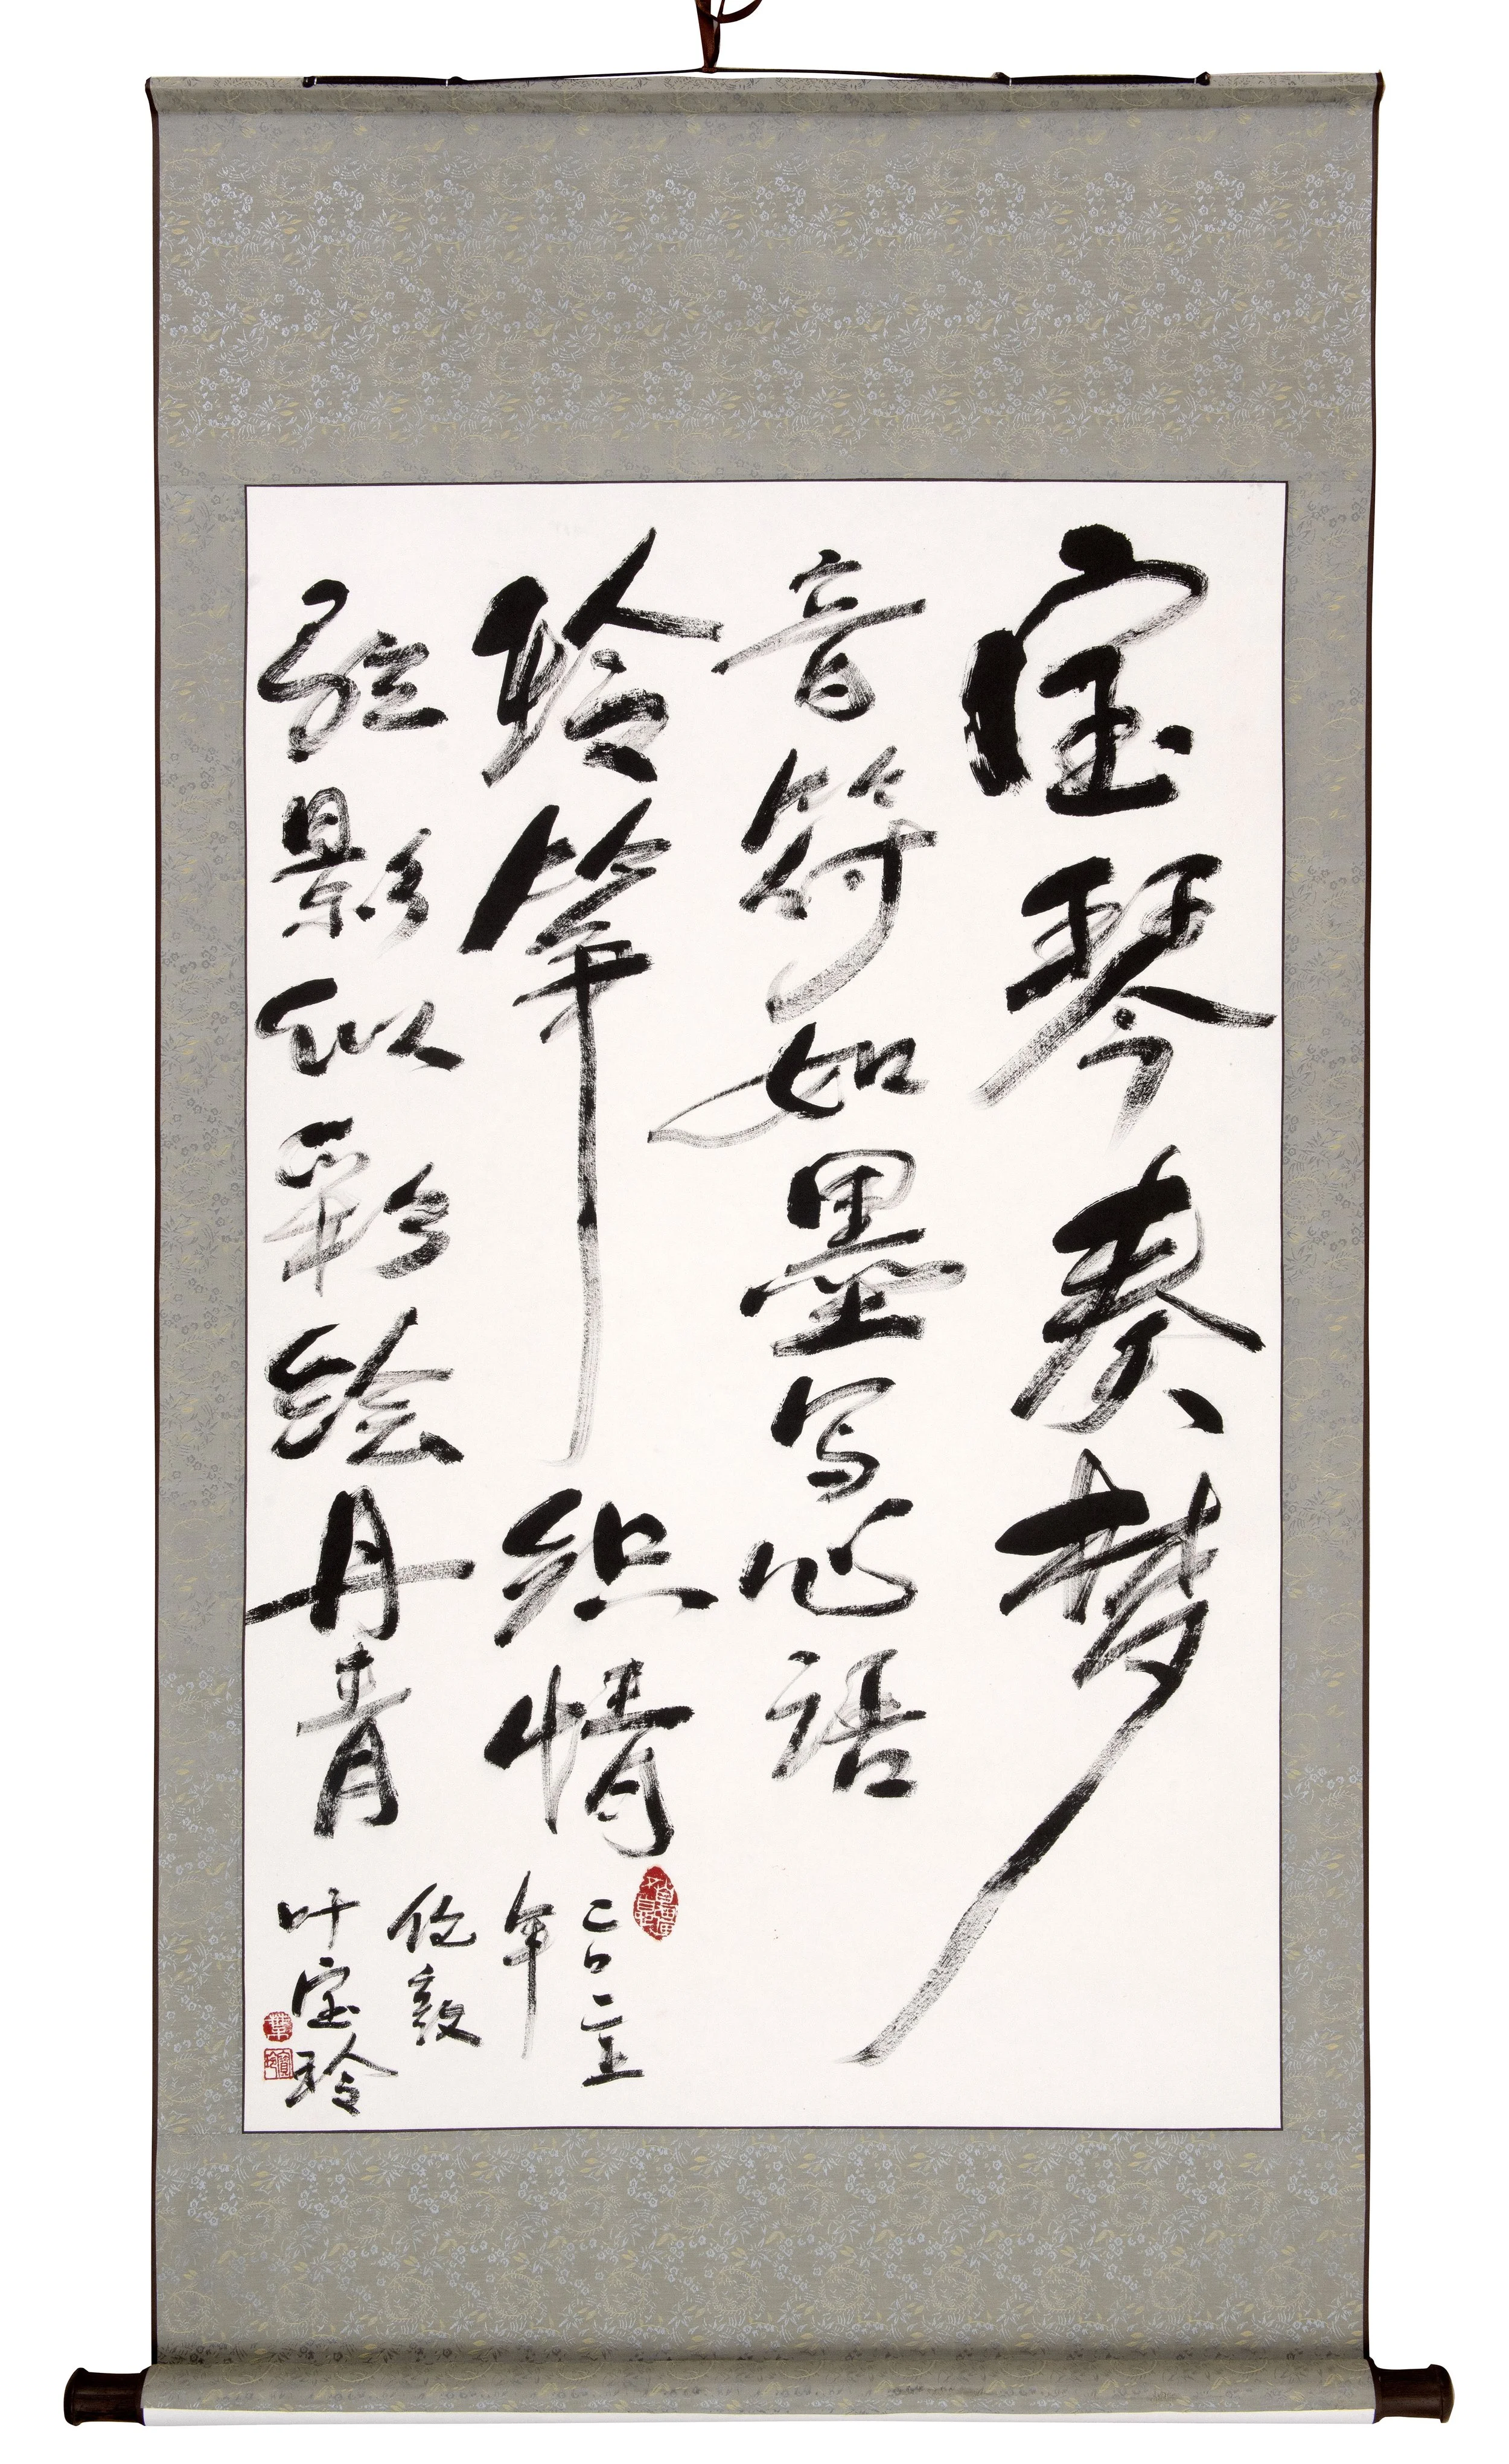 宝琴奏梦
音符如墨写心语
玲筝织情
弦影似彩绘丹青
二〇二五
年
伦敦
叶宝玲
葉
寶玲